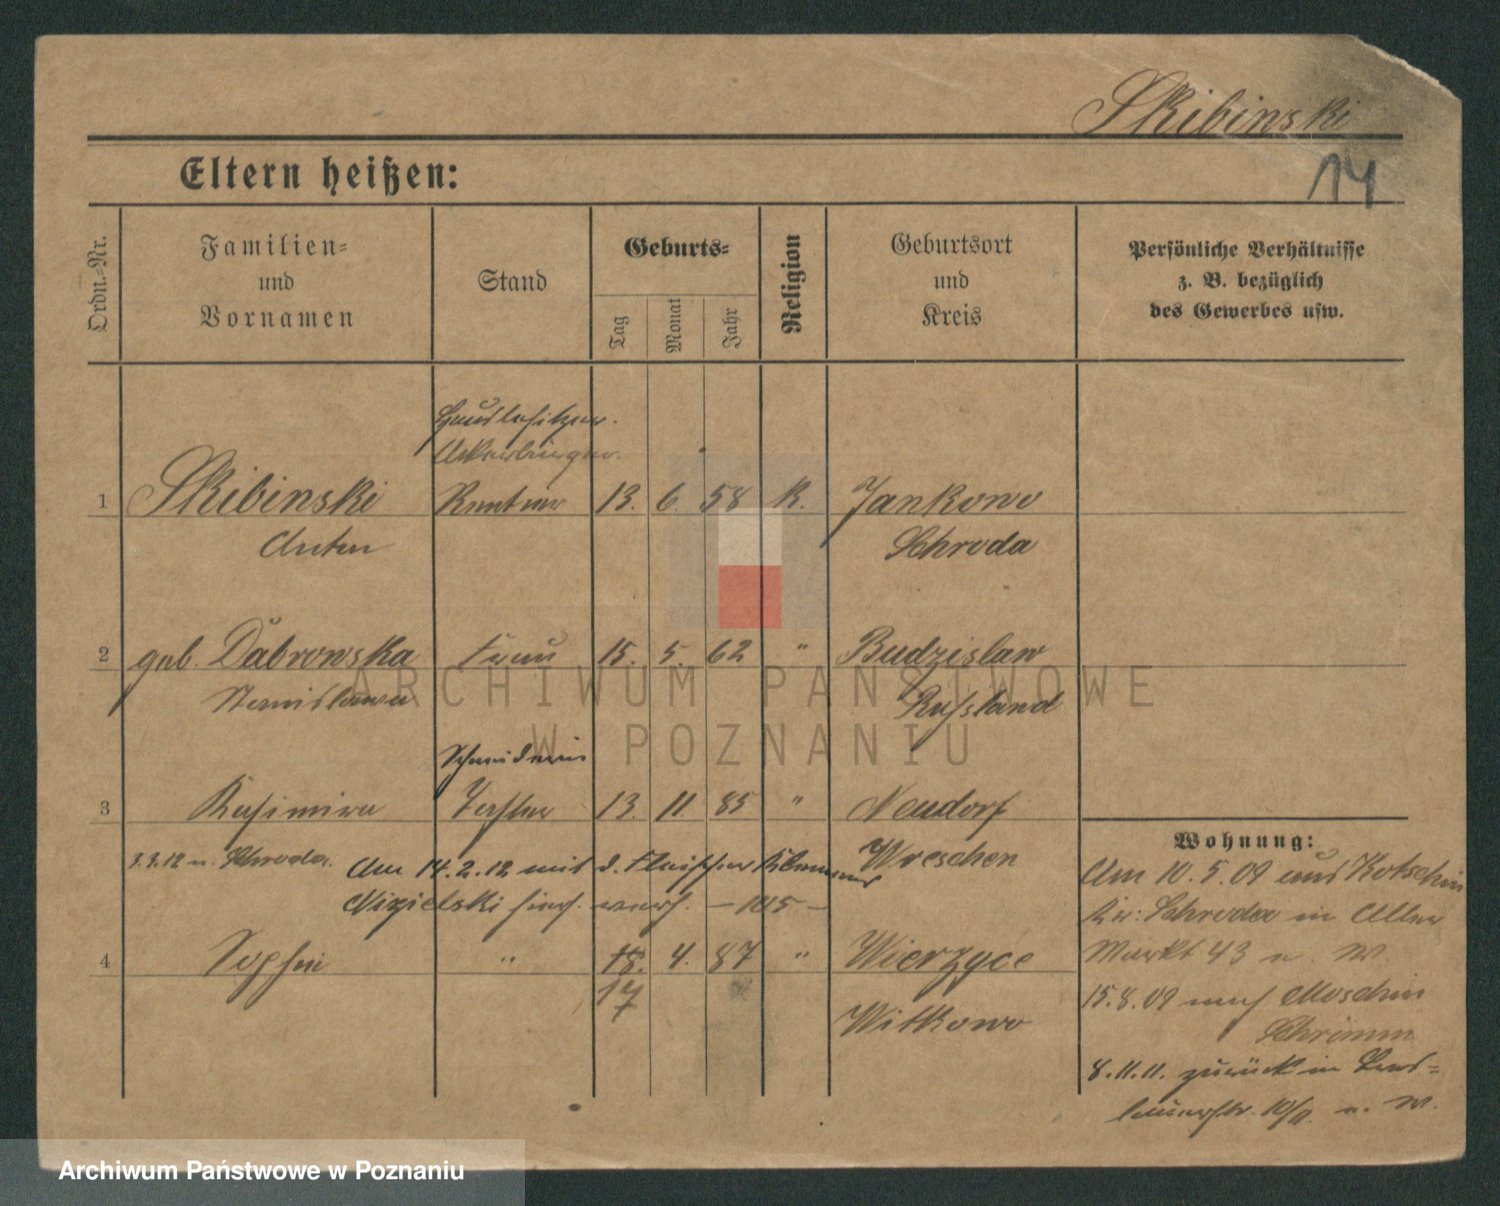 Skibinski
14
Eltern heißen:
Ordn.-Nr.
Familien-
und
Vornamen
Stand
Geburts-
Tag
Monat
Jahr
Religion
Geburtsort
und
Kreis
Persönliche Verhältnisse
z. B. bezüglich
des Gewerbes usw.
Hausbesitzer.
Ackerbürger.
1 Skibinski Rentner 13. 6. 58 K. Jankowo
Anton Schroda
2 geb. Dabrowska Frau 15. 5. 62 " Budzislaw
Stanislawa Russland
Schneiderin
3 Kasimira Tochter 13. 11. 85 " Neudorf
Wreschen
3.3.12 n. Schroda. Am 14.2.12 mit d. Fleischer
Nizielski
4 Sophie " 18. 4. 87 " Wierzyce
17
Witkowo
Wohnung:
Am 10.5.09 aus Kotschin
Kr: Schroda in Alter
Markt 43 n. W.
15.8.09 nach Moschin
Schrimm
8.11.11. zurück in
10/11. n. W.
ARCHIWUM PAŃSTWOWE
W POZNANIU
Archiwum Państwowe w Poznaniu